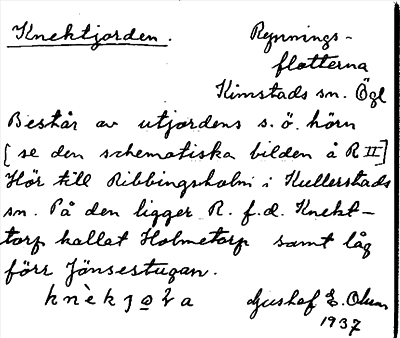 Knektjorden. Rynnings-
flotterna
Kimstads sn. Ögl
Består av utjordens s.ö. hörn
[se den schematiska bilden å R II]
Hör till Ribbingsholm i Kullerstads
sn. På den ligger R. f.d. Knekt-
torp kallat Holmetorp samt låg
förr Jönsestugan.
Gustaf E. Olson
1937